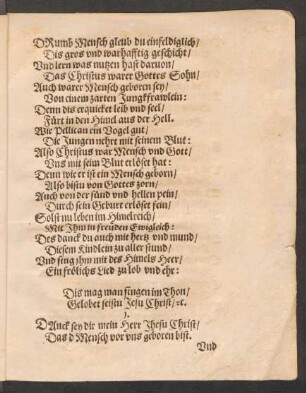 DRumb Mensch gleub du einfeldiglich/
Dis gros vnd warhafftig geschicht/
Vnd lern was nutzen hast daruon/
Das Christus warer Gottes Sohn/
Auch warer Mensch geboren sey/
Von einem zarten Jungkfrawlein:
Denn dis erquicket leib vnd seel/
Fürt in den Himel aus der Hell.
Wie Pellican ein Vogel gut/
Die Jungen nehrt mit seinem Blut:
Also Christus war Mensch vnd Gott/
Vns mit seim Blut erlöset hat:
Denn wie er ist ein Mensch geborn/
Also bistu von Gottes zorn/
Auch von der sünd vnd hellen pein/
Durch sein Geburt erlöset sein/
Solst nu leben im Himelreich/
Mit Ihm in freuden Ewigleich:
Des danck du auch mit hertz vnd mund/
Diesem Kindlein zu aller stund/
Vnd sing ihm mit des Himels Heer/
Ein frölichs Lied zu lob vnd ehr:
Dis mag man singen im Thon/
Gelobet seistu Jesu Christ/ ꝛc.
1.
DAnck sey dir mein Herr Jhesu Christ/
Das d Mensch vor vns geboren bist.
Vnd